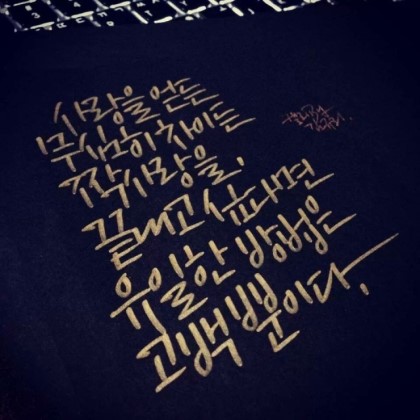 사랑을 얻든
무심히 차이든
짝사랑을,
끝내고 싶다면
유일한 방법은
고백 뿐이다.